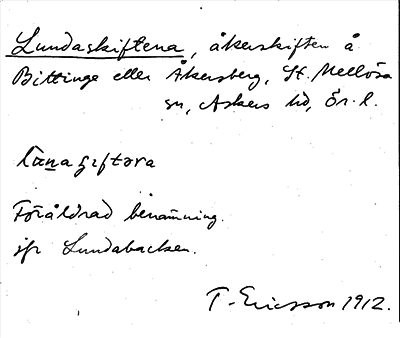 Lundaskiftena, åkerskiften å
Bittinge eller Åkersberg, St. Mellösa
sn, Askers hd, Ör. l.
Föråldrad benämning.
jfr Lundabacken.
T. Ericsson 1912.